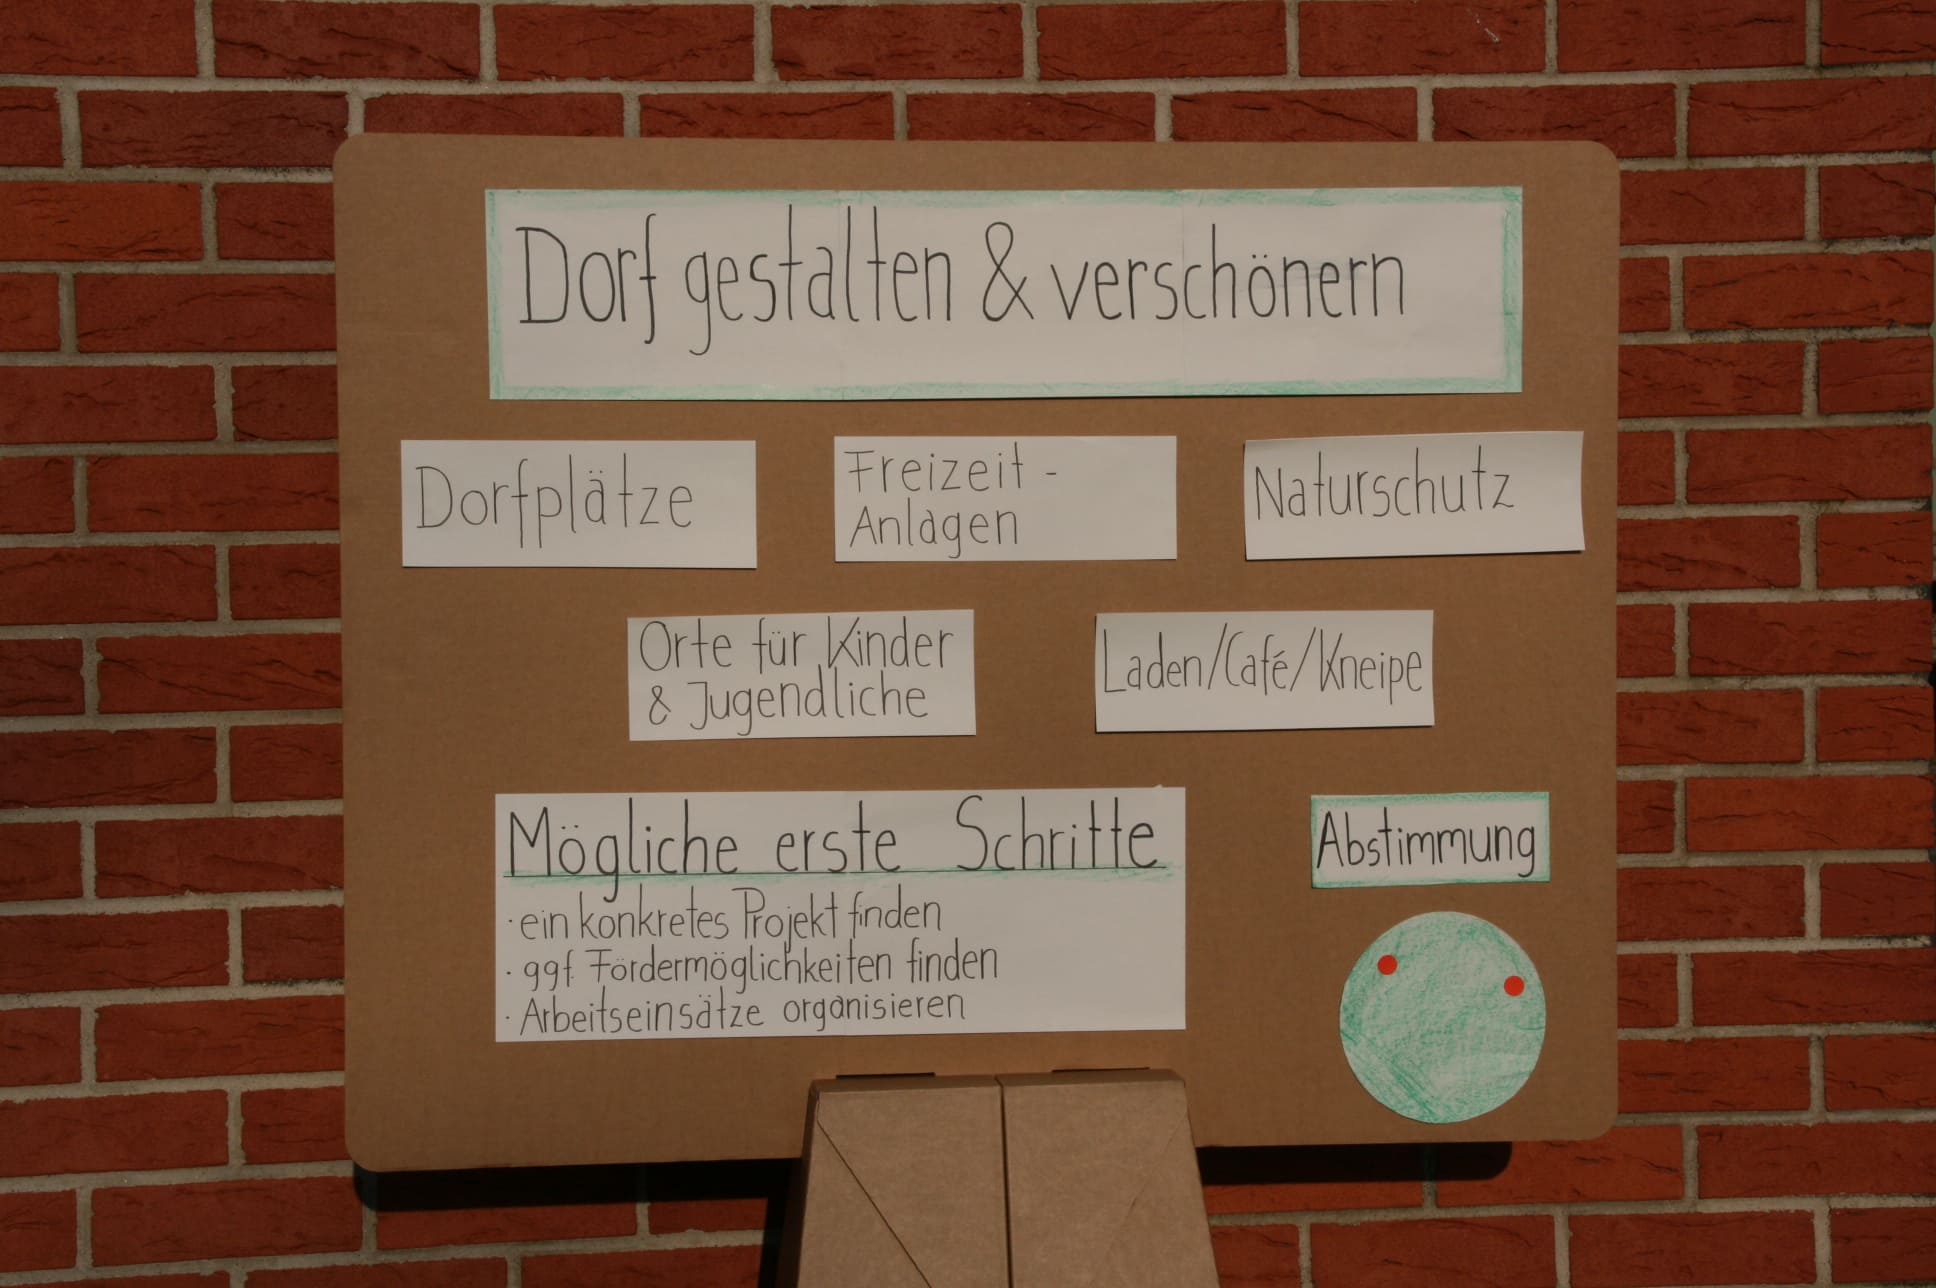 Dorf gestalten & verschönern
Dorfplätze
Freizeit-
Anlagen
Naturschutz
Orte für Kinder
& Jugendliche
Laden/Café/Kneipe
Mögliche erste Schritte
· ein konkretes Projekt finden
· ggf. Fördermöglichkeiten finden
· Arbeitseinsätze organisieren
Abstimmung